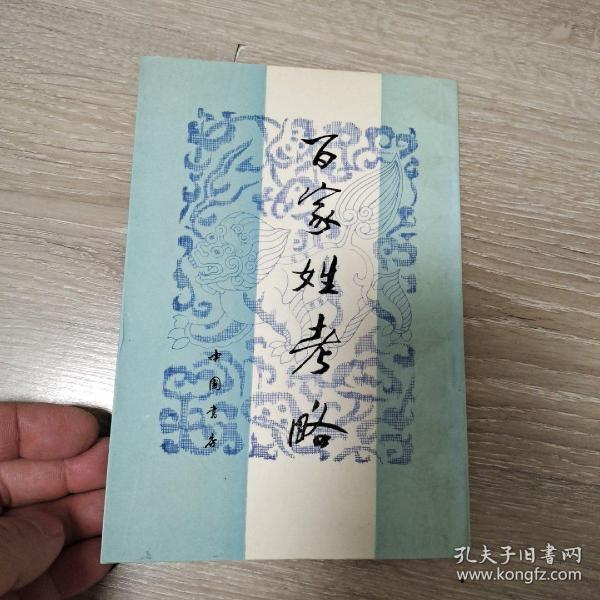 百家姓考略
中国书店
孔夫子旧書网
www.kongfz.com